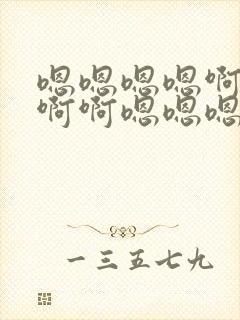 嗯嗯嗯嗯啊
啊啊嗯嗯嗯
一三五七九